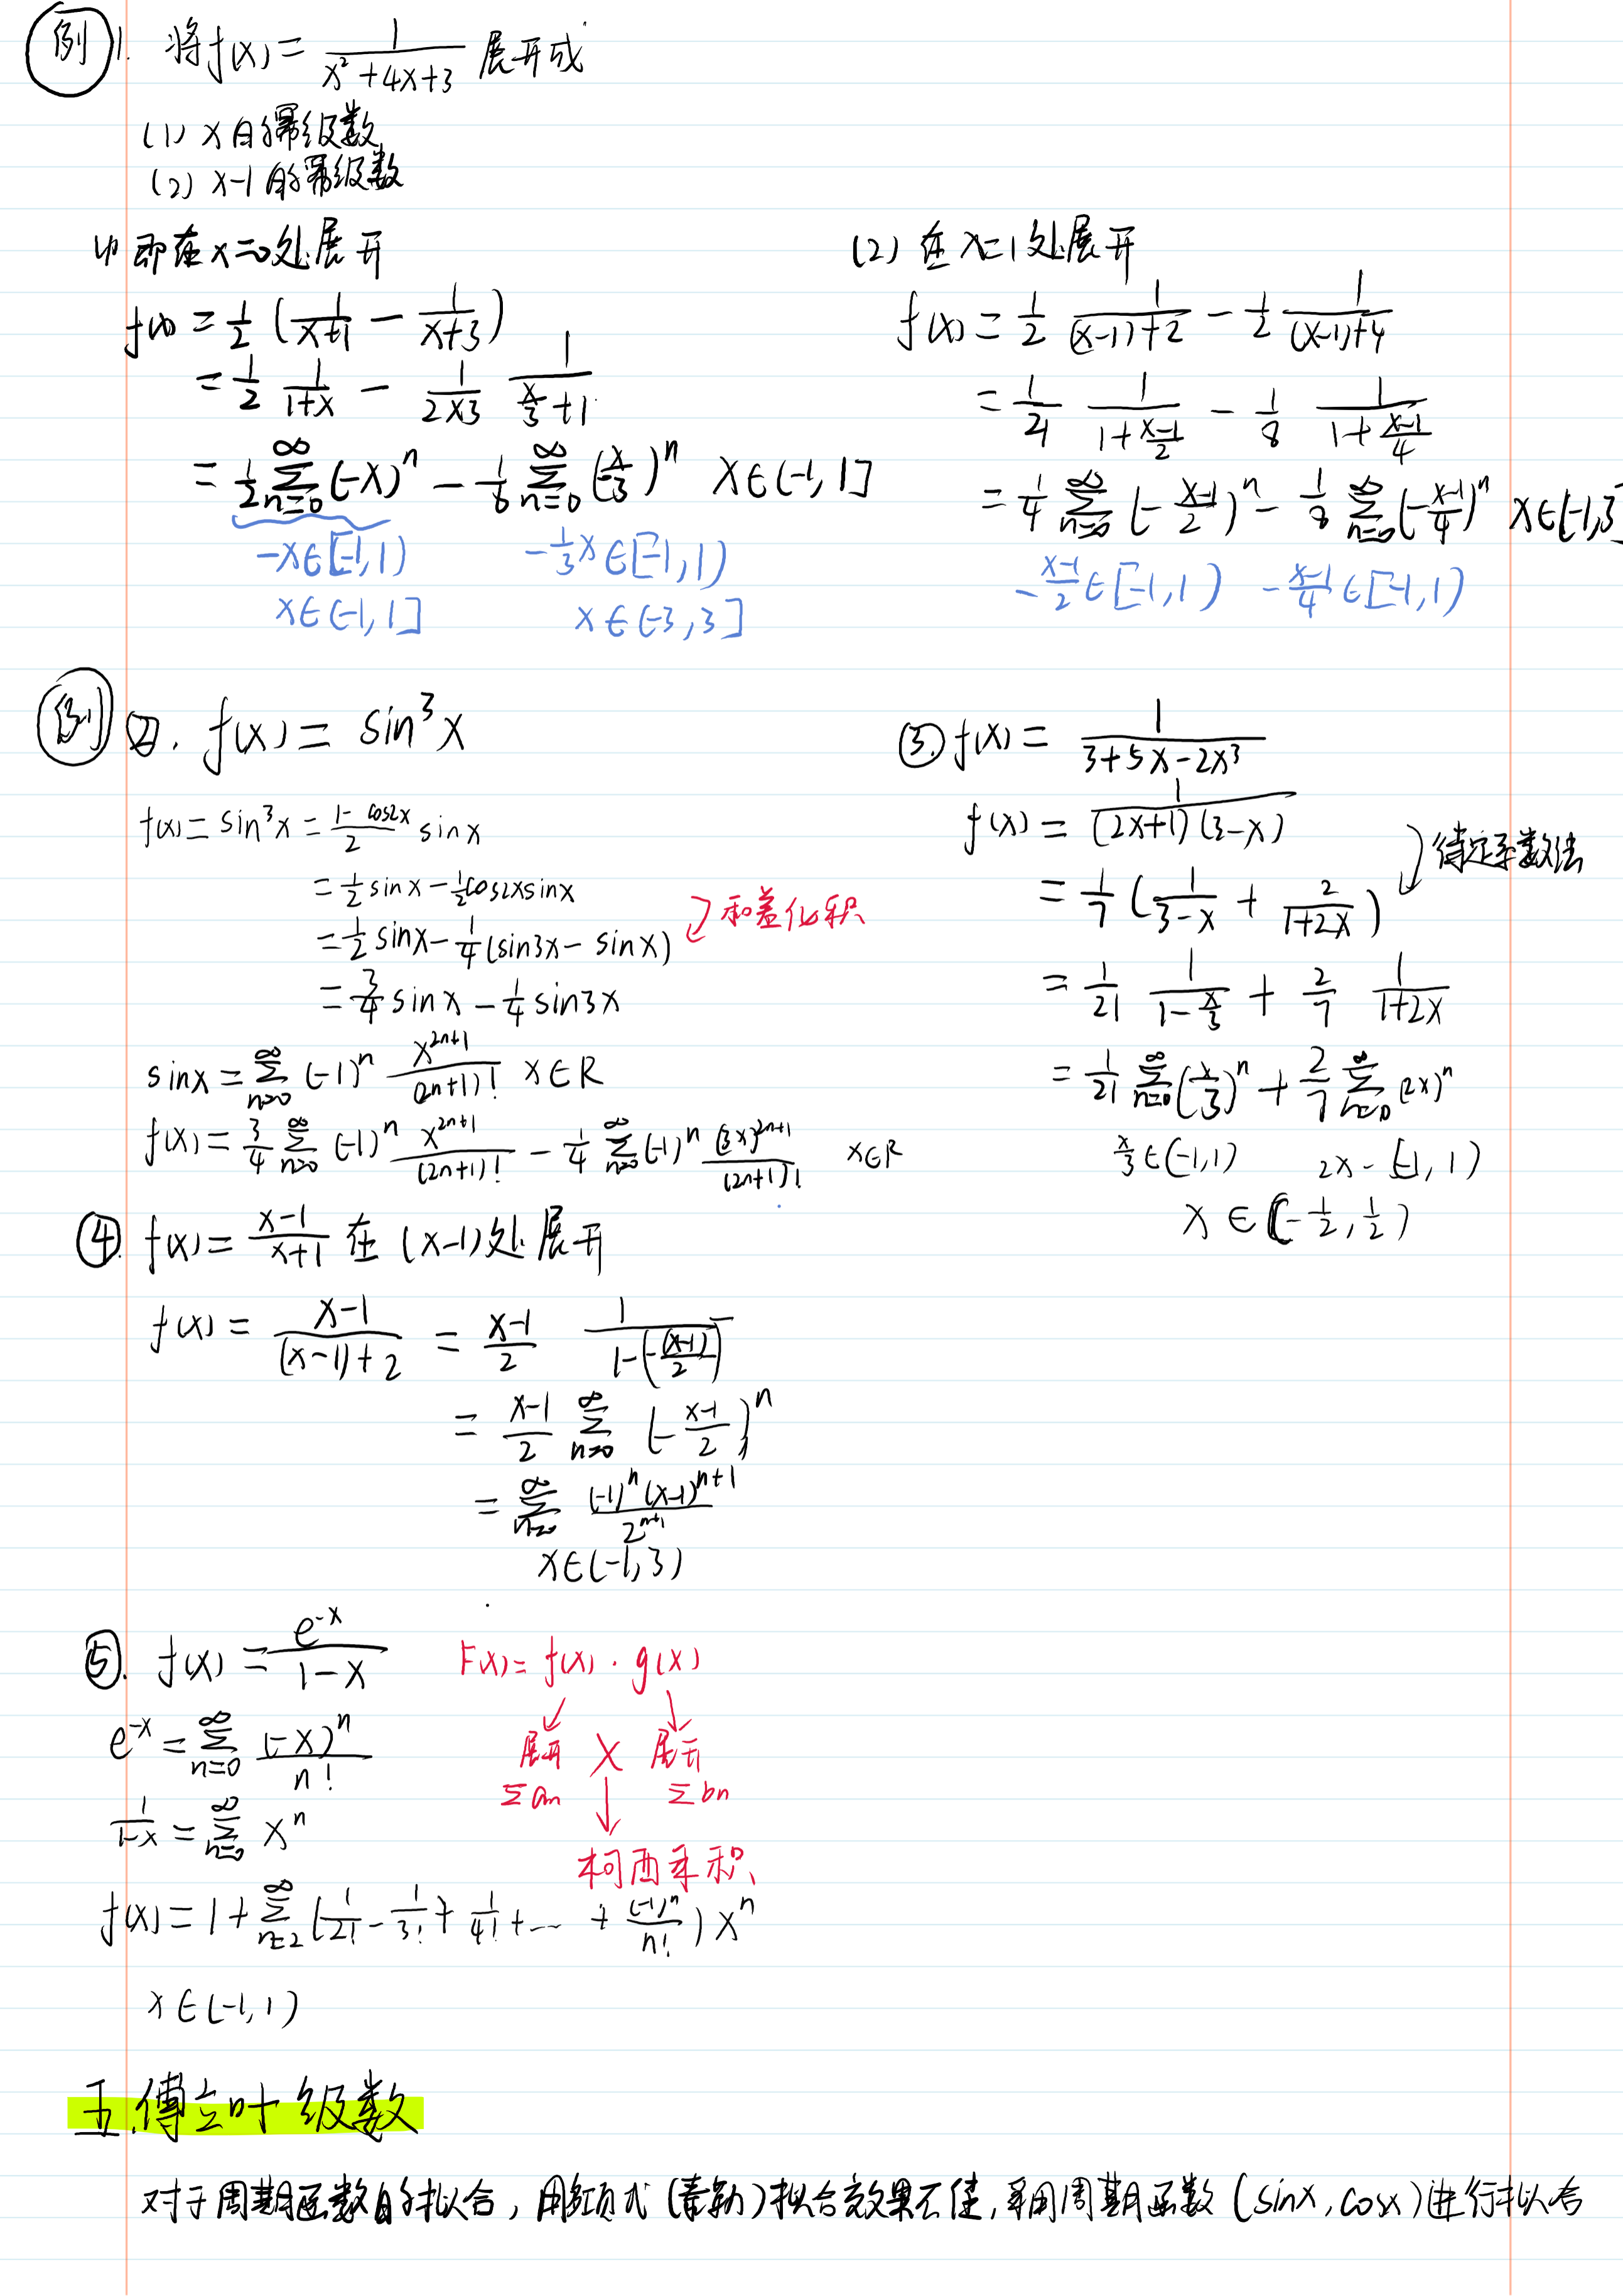 例1. 将f(x) = 1/(x²+4x+3) 展开成
(1) x的幂级数
(2) x-1的幂级数
(1) 即在x=0处展开
f(x) = 1/2 (1/(x+1) - 1/(x+3))
= 1/2 1/(1+x) - 1/(2×3) 1/(x/3+1)
= 1/2 ∑_{n=0}^∞ (-x)^n - 1/6 ∑_{n=0}^∞ (-x/3)^n x∈(-1,1]
-x∈[-1,1) -1/3x∈[-1,1)
x∈(-1,1] x∈(-3,3]
(2) 在x=1处展开
f(x) = 1/2 1/((x-1)+2) - 1/2 1/((x-1)+4)
= 1/4 1/(1+(x-1)/2) - 1/8 1/(1+(x-1)/4)
= 1/4 ∑_{n=0}^∞ (-(x-1)/2)^n - 1/8 ∑_{n=0}^∞ (-(x-1)/4)^n x∈(-1,3]
-(x-1)/2∈[-1,1) -(x-1)/4∈[-1,1)
例②. f(x) = sin³x
f(x) = sin³x = (1-cos2x)/2 sinx
= 1/2 sinx - 1/2 cos2xsinx
= 1/2 sinx - 1/4 (sin3x - sinx) 和差化积
= 3/4 sinx - 1/4 sin3x
sinx = ∑_{n=0}^∞ (-1)^n x^{2n+1}/(2n+1)! x∈R
f(x) = 3/4 ∑_{n=0}^∞ (-1)^n x^{2n+1}/(2n+1)! - 1/4 ∑_{n=0}^∞ (-1)^n (3x)^{2n+1}/(2n+1)! x∈R
③ f(x) = 1/(3+5x-2x³)
f(x) = 1/((2x+1)(3-x))
= 1/7 (1/(3-x) + 2/(1+2x)) 待定系数法
= 1/21 1/(1-x/3) + 2/7 1/(1+2x)
= 1/21 ∑_{n=0}^∞ (x/3)^n + 2/7 ∑_{n=0}^∞ (2x)^n
x/3∈(-1,1) 2x-(-1,1)
x∈(-1/2,1/2)
④. f(x) = (x-1)/(x+1) 在(x-1)处展开
f(x) = (x-1)/((x-1)+2) = (x-1)/2 1/(1-(-(x-1)/2))
= (x-1)/2 ∑_{n=0}^∞ (-(x-1)/2)^n
= ∑_{n=0}^∞ (-1)^n(x-1)^{n+1}/2^{n+1}
x∈(-1,3)
⑤. f(x) = e^{-x}/(1-x) F(x) = f(x)·g(x)
e^{-x} = ∑_{n=0}^∞ (-x)^n/n! 展开 × 展开
∑an ∑bn
1/(1-x) = ∑_{n=0}^∞ x^n
柯西乘积
f(x) = 1 + ∑_{n=2}^∞ (1/2! - 1/3! + 1/4! + … + (-1)^n/n!) x^n
x∈(-1,1)
五.傅立叶级数
对于周期函数的拟合,用多项式(泰勒)拟合效果不佳,采用周期函数(sinx,cosx)进行拟合